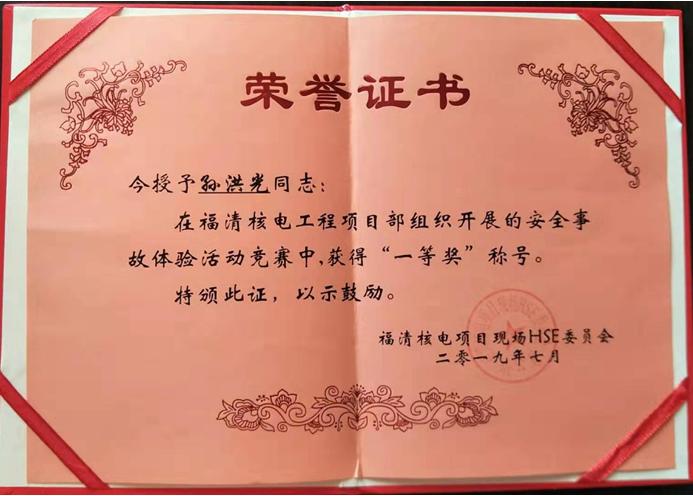 荣誉证书
今授予孙洪光同志：
在福清核电工程项目部组织开展的安全事
故体验活动竞赛中,获得“一等奖”称号。
特颁此证，以示鼓励。
福清核电项目现场HSE委员会
二零一九年七月